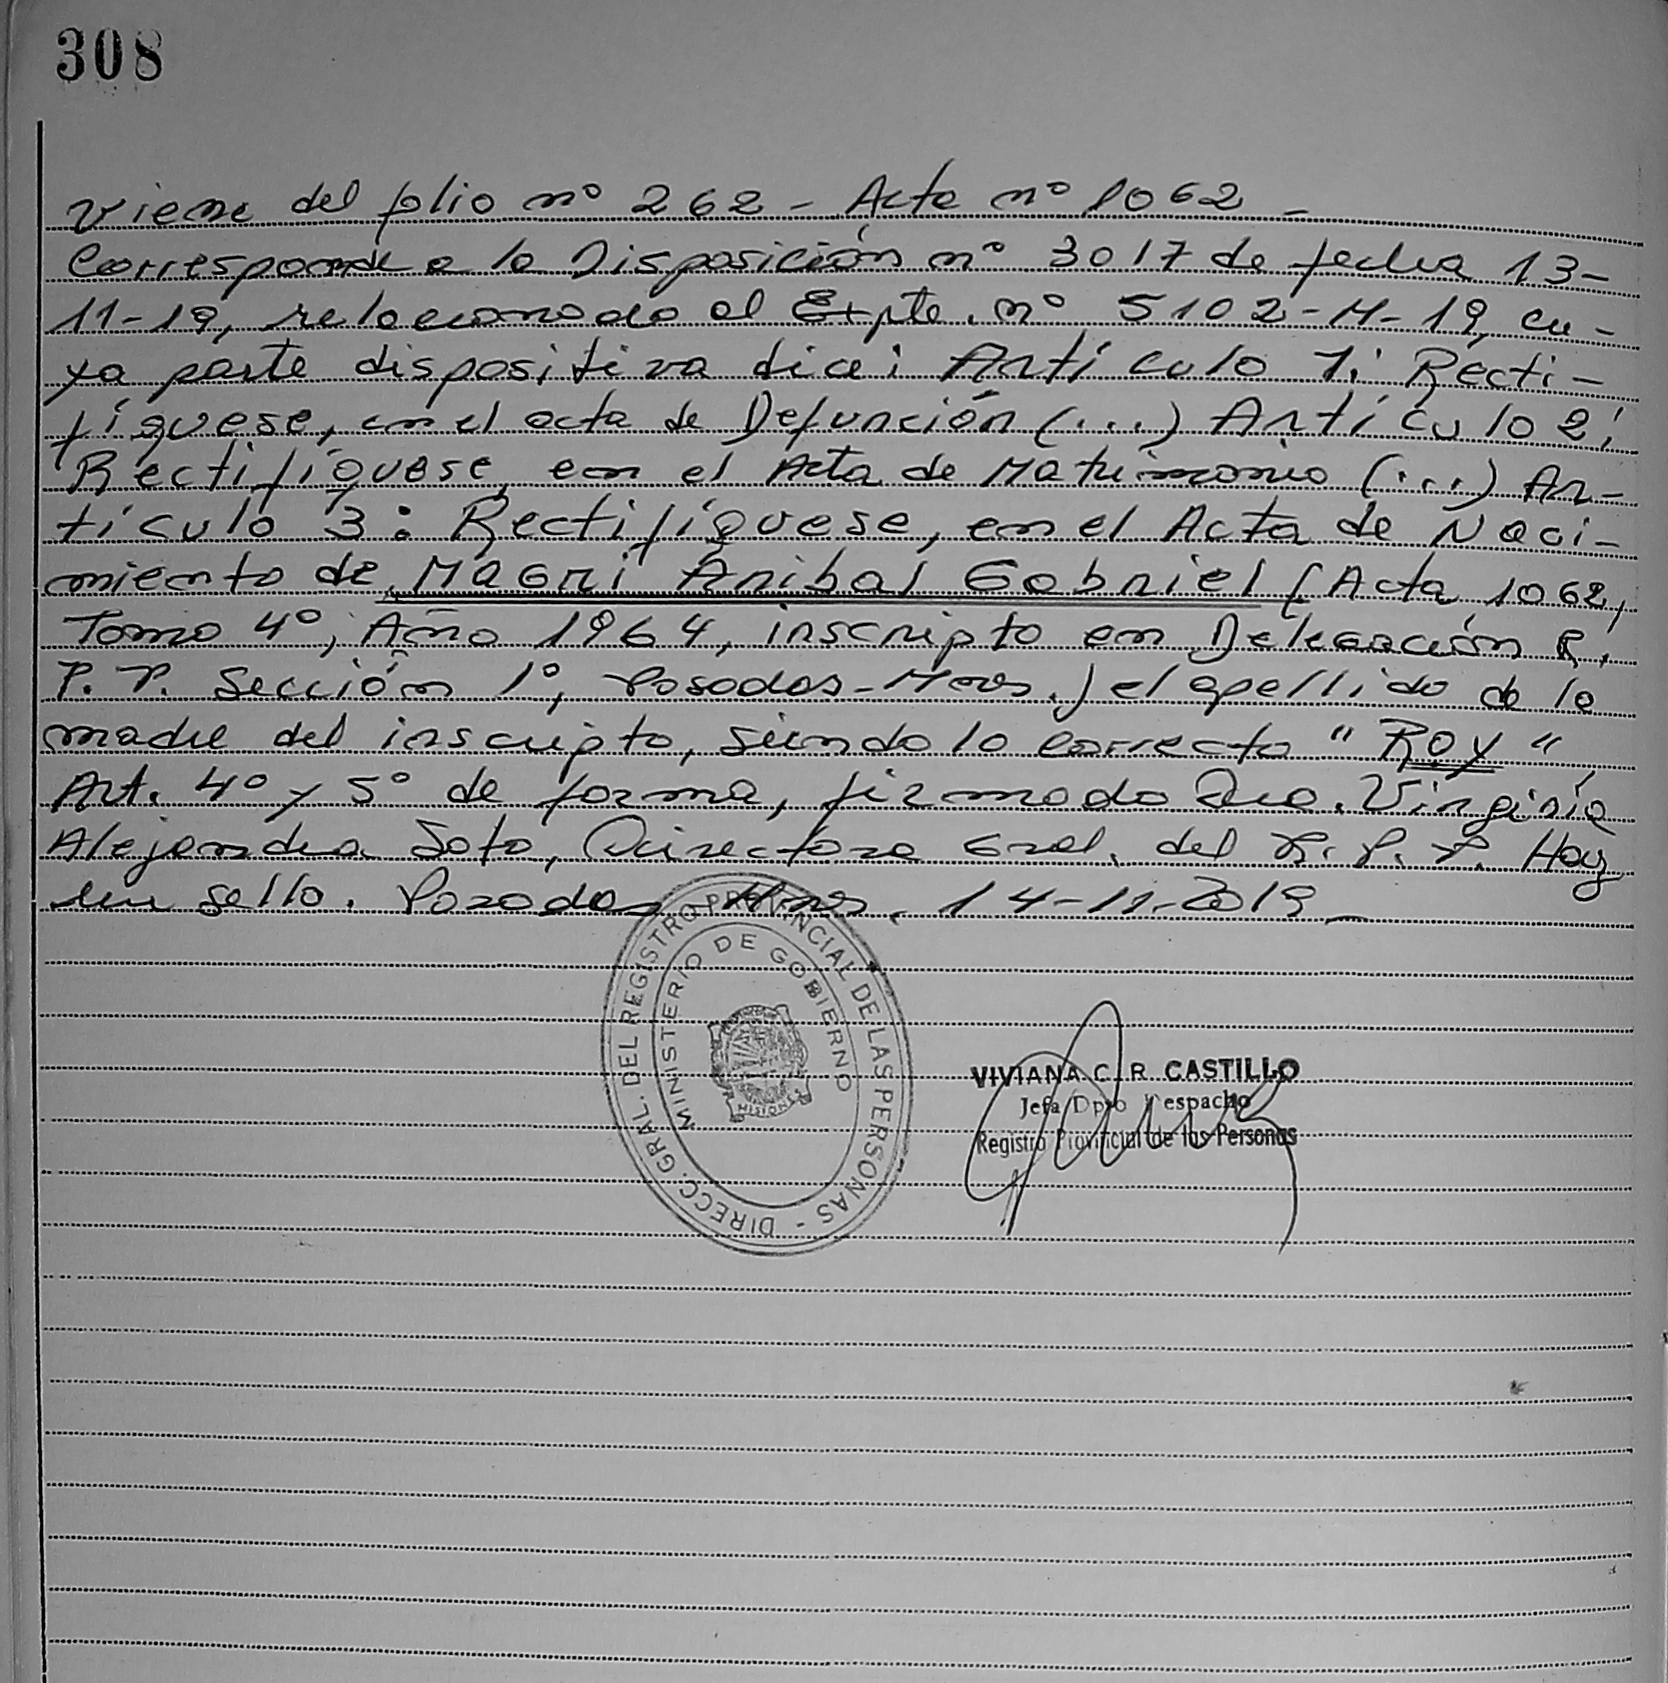 308
Viene del folio nº 262 - Acta nº 1062 -
Corresponde a la Disposición nº 3017 de fecha 13-
11-19, relacionado al Expte. nº 5102-M-19, cu-
ya parte dispositiva dice: Artículo 1: Recti-
fíquese, en el acta de Defunción (...) Artículo 2:
Rectifíquese, en el Acta de Matrimonio (...) Ar-
tículo 3: Rectifíquese, en el Acta de Naci-
miento de MAGRI Anibal Gabriel (Acta 1062,
Tomo 4º, Año 1964, inscripto en Delegación R.
P. P. Sección 1º, Posadas-Mnes.) el apellido de la
madre del inscripto, siendo lo correcto "ROY"
Art. 4º y 5º de forma, firmado Dra. Virginia
Alejandra Soto, Directora Gral. del R. P. P. Hay
un sello. Posadas Mnes. 14-11-2019 -
DIRECC. GRAL. DEL REGISTRO PROVINCIAL DE LAS PERSONAS -
MINISTERIO DE GOBIERNO
MISIONES
VIVIANA C. R. CASTILLO
Jefa Dpto Despacho
Registro Provincial de las Personas